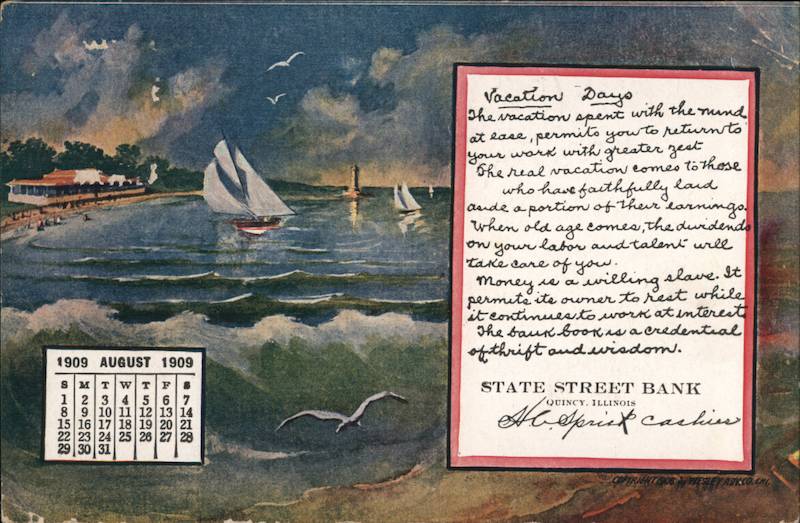 1909 AUGUST 1909
S M T W T F S
1 2 3 4 5 6 7
8 9 10 11 12 13 14
15 16 17 18 19 20 21
22 23 24 25 26 27 28
29 30 31
Vacation Days
The vacation spent with the mind
at ease, permits you to return to
your work with greater zest
The real vacation comes to those
who have faithfully laid
aside a portion of their earnings.
When old age comes, the dividends
on your labor and talent will
take care of you.
Money is a willing slave. It
permits its owner to rest while
it continues to work at interest
The bank book is a credential
of thrift and wisdom.
STATE STREET BANK
QUINCY, ILLINOIS
Cashier
COPYRIGHT BY WESLEY ADV. CO. CHI.